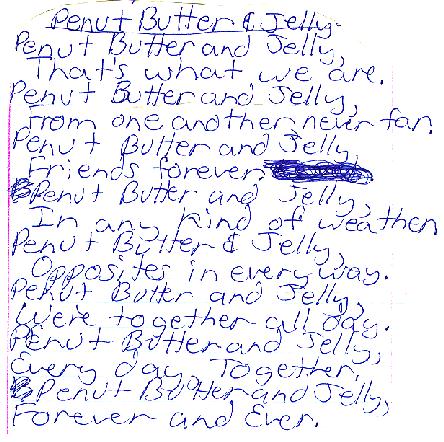 Penut Butter & Jelly
Penut Butter and Jelly,
That's what we are.
Penut Butter and Jelly,
From one another never far.
Penut Butter and Jelly,
Friends forever
Penut Butter and Jelly,
In any kind of weather.
Penut Butter & Jelly,
Opposites in every way.
Penut Butter and Jelly,
We're together all day.
Penut Butter and Jelly,
Every day, Together,
Penut Butter and Jelly,
Forever and Ever.